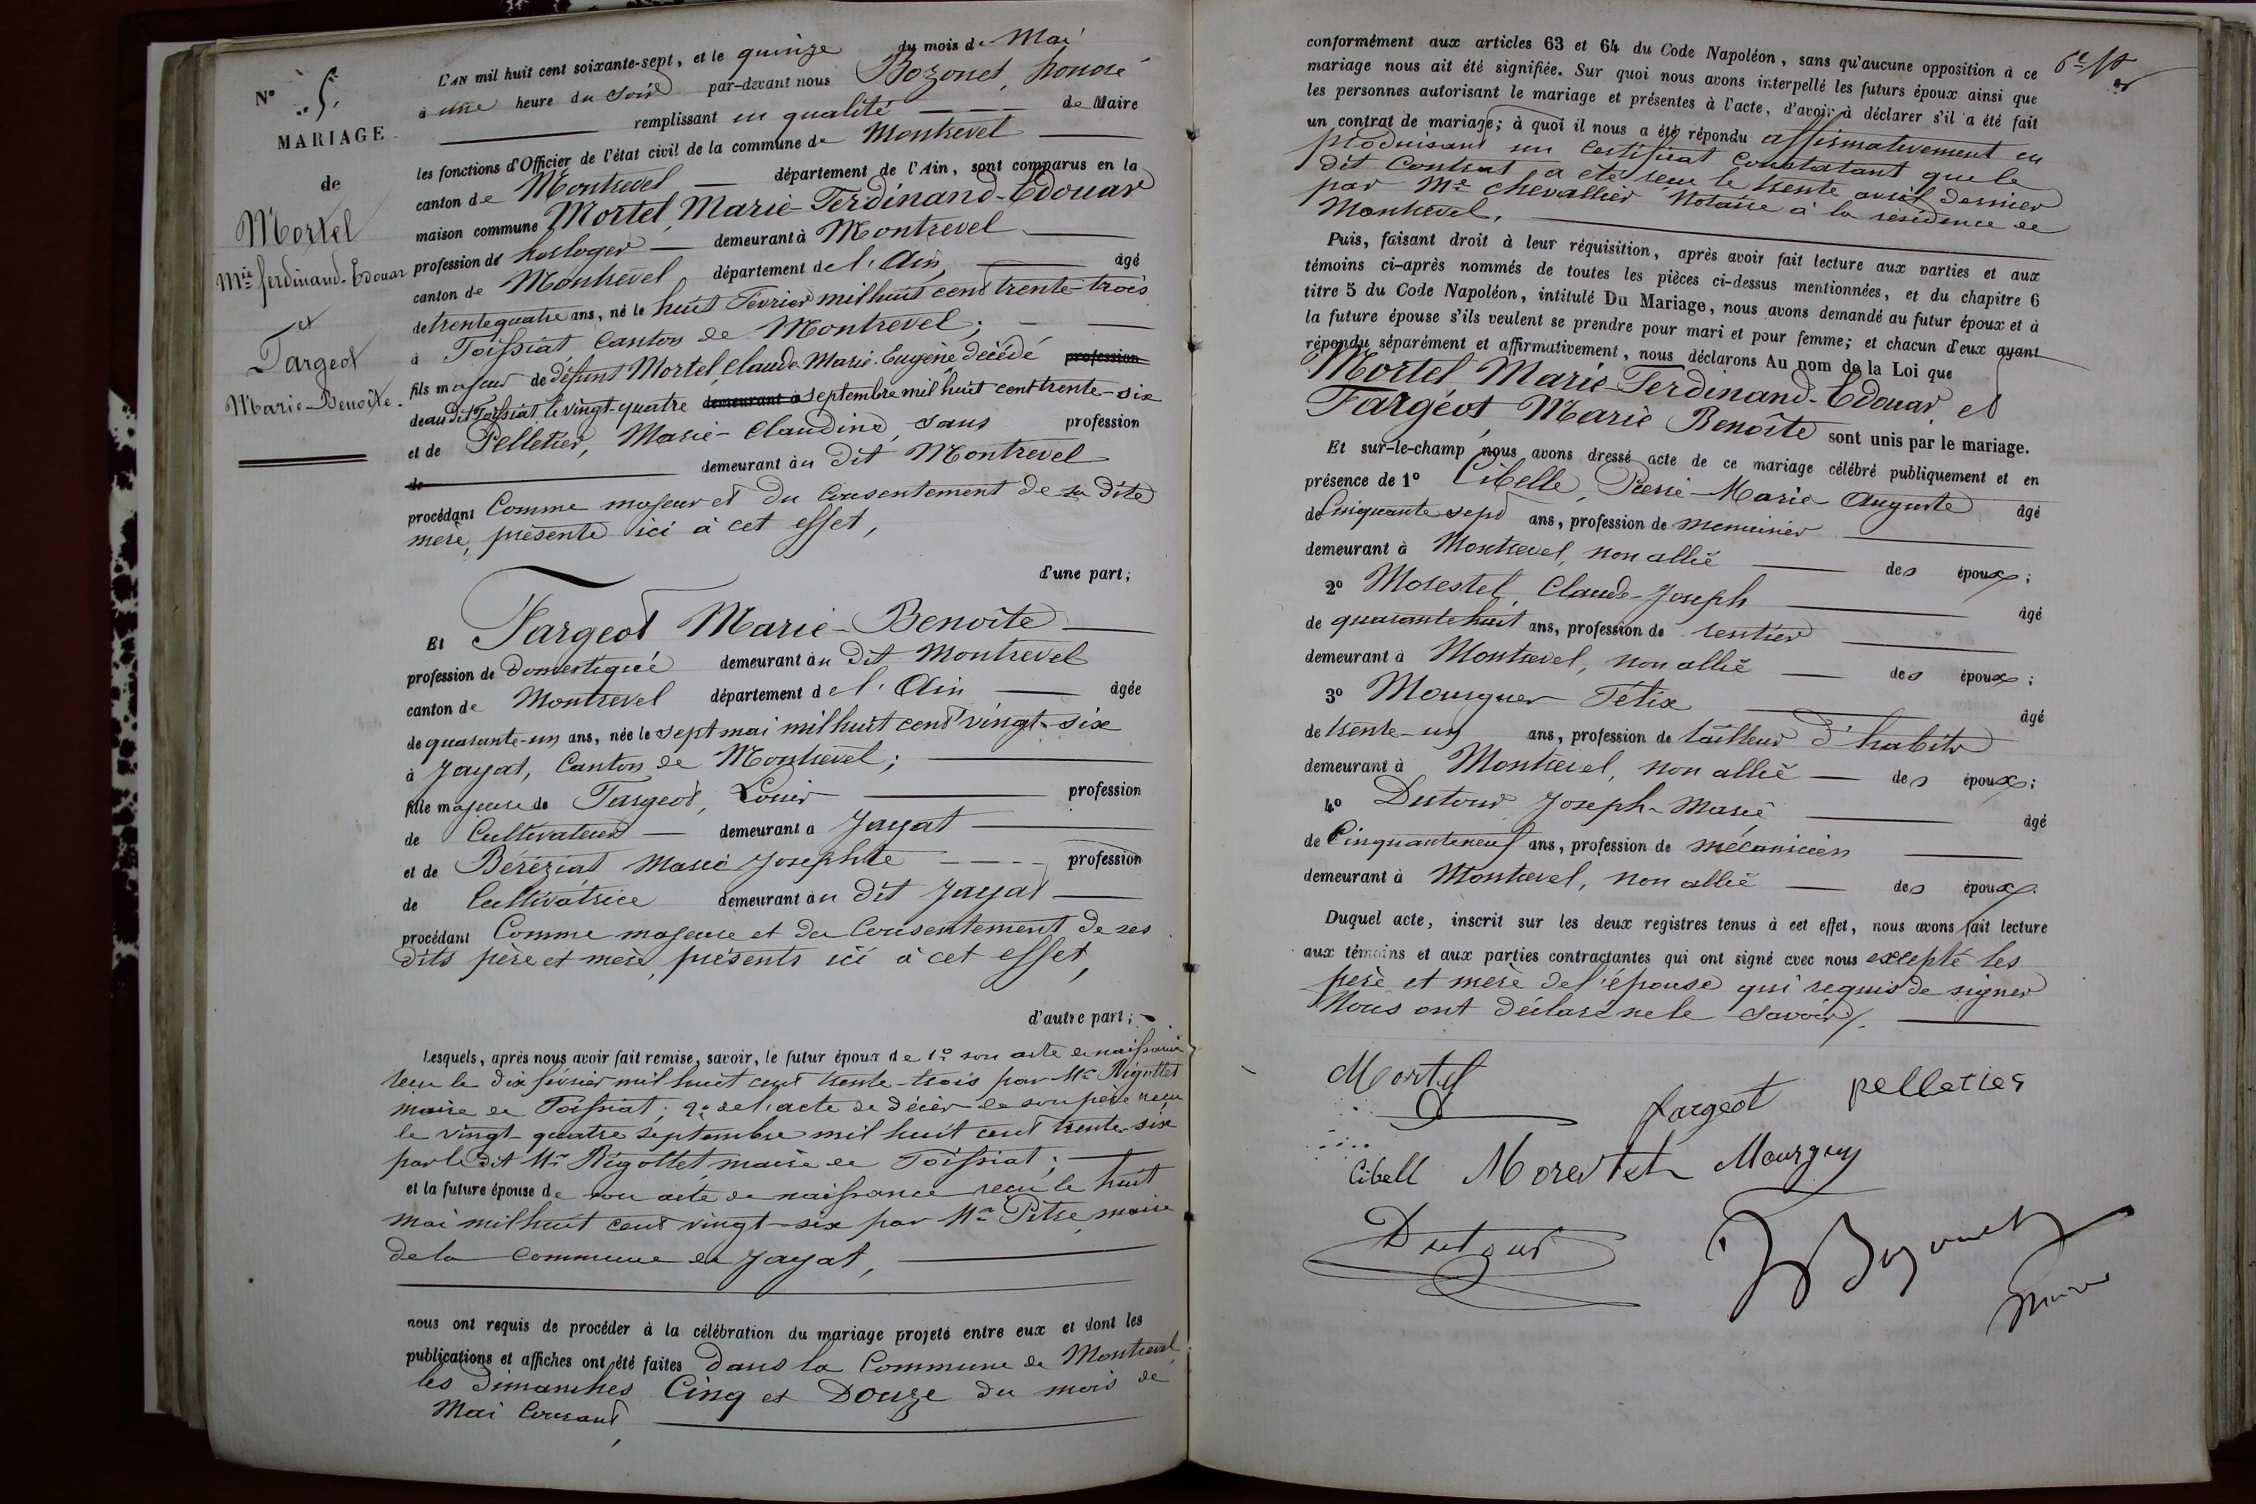 N° 5.
MARIAGE
de
Mortel
Mie ferdinand-Edouar
et
Fargeot
Marie-Benoîte.
L'AN mil huit cent soixante-sept, et le quinze du mois de Mai
à une heure du soir par-devant nous Bozonet, honoré
remplissant en qualité de Maire
les fonctions d'Officier de l'état civil de la commune de Montrevel
canton de Montrevel département de l'Ain, sont comparus en la
maison commune Mortel, Marie-Ferdinand-Edouar
profession de horloger demeurant à Montrevel
canton de Montrevel, département de l'Ain, âgé
de trente quatre ans, né le huit Fevrier mil huit cent trente-trois
à Foissiat Canton de Montrevel;
fils majeur de défunt Mortel, Claude Marie-Eugène décédé profession
de audit Foissiat, le vingt-quatre demeurant à septembre mil huit cent trente-six
et de Pelletier, Marie-Claudine, sans profession
de demeurant au dit Montrevel
procédant Comme majeur et du Consentement de sa dite
mère, présente ici à cet effet,
d'une part;
Et Fargeot Marie-Benoîte
profession de domestique demeurant au dit Montrevel
canton de Montrevel département de l'Ain âgée
de quarante-un ans, née le sept mai mil huit cent vingt-six
à Jayat, Canton de Montrevel;
fille majeure de Fargeot, Louis profession
de Cultivateur demeurant à Jayat
et de Béréziat Marie Josephte profession
de Cultivatrice demeurant au dit Jayat
procédant Comme majeure et du Consentement de ses
dits père et mère, présents ici à cet effet,
d'autre part;
Lesquels, après nous avoir fait remise, savoir, le futur époux de 1° son acte de naissance
reçu le dix février mil huit cent trente-trois par Mr Rigottet
maire de Foissiat; 2° de l'acte de décès de son père reçu
le vingt-quatre septembre mil huit cent trente-six
par le dit Mr Rigottet maire de Foissiat;
et la future épouse de son acte de naissance reçu le huit
mai mil huit cent vingt-six par Mr Pitre, maire
de la commune de Jayat,
nous ont requis de procéder à la célébration du mariage projeté entre eux et dont les
publications et affiches ont été faites dans la Commune de Montrevel
les dimanches Cinq et Douze du mois de
Mai Courant,
conformément aux articles 63 et 64 du Code Napoléon, sans qu'aucune opposition à ce
mariage nous ait été signifiée. Sur quoi nous avons interpellé les futurs époux ainsi que
les personnes autorisant le mariage et présentes à l'acte, d'avoir à déclarer s'il a été fait
un contrat de mariage; à quoi il nous a été répondu affirmativement en
produisant un Certificat constatant que le
dit Contrat a été reçu le trente avril dernier
par Me Chevallier Notaire à la résidence de
Montrevel.
Puis, faisant droit à leur réquisition, après avoir fait lecture aux parties et aux
témoins ci-après nommés de toutes les pièces ci-dessus mentionnées, et du chapitre 6
titre 5 du Code Napoléon, intitulé Du Mariage, nous avons demandé au futur époux et à
la future épouse s'ils veulent se prendre pour mari et pour femme; et chacun d'eux ayant
répondu séparément et affirmativement, nous déclarons Au nom de la Loi que
Mortel Marie-Ferdinand-Edouar et
Fargéot, Marie Benoîte sont unis par le mariage.
Et sur-le-champ nous avons dressé acte de ce mariage célébré publiquement et en
présence de 1° Cibelle, Pierre-Marie-Auguste âgé
de Cinquante sept ans, profession de menuisier
demeurant à Montrevel, non allié des époux;
2° Morestel, Claude-Joseph âgé
de quarante huit ans, profession de rentier
demeurant à Montrevel, non allié des époux;
3° Mourguer Félix âgé
de trente-un ans, profession de tailleur d'habits
demeurant à Montrevel, non allié des époux;
4° Dutour Joseph-Marie âgé
de Cinquante neuf ans, profession de mécanicien
demeurant à Montrevel, non allié des époux.
Duquel acte, inscrit sur les deux registres tenus à cet effet, nous avons fait lecture
aux témoins et aux parties contractantes qui ont signé avec nous excepté les
père et mère de l'épouse qui requis de signer
Nous ont déclaré ne le savoir.
Mortel
fargeot pelletier
Cibell Morestel Mourguy
Dutour Bozonet
Maire